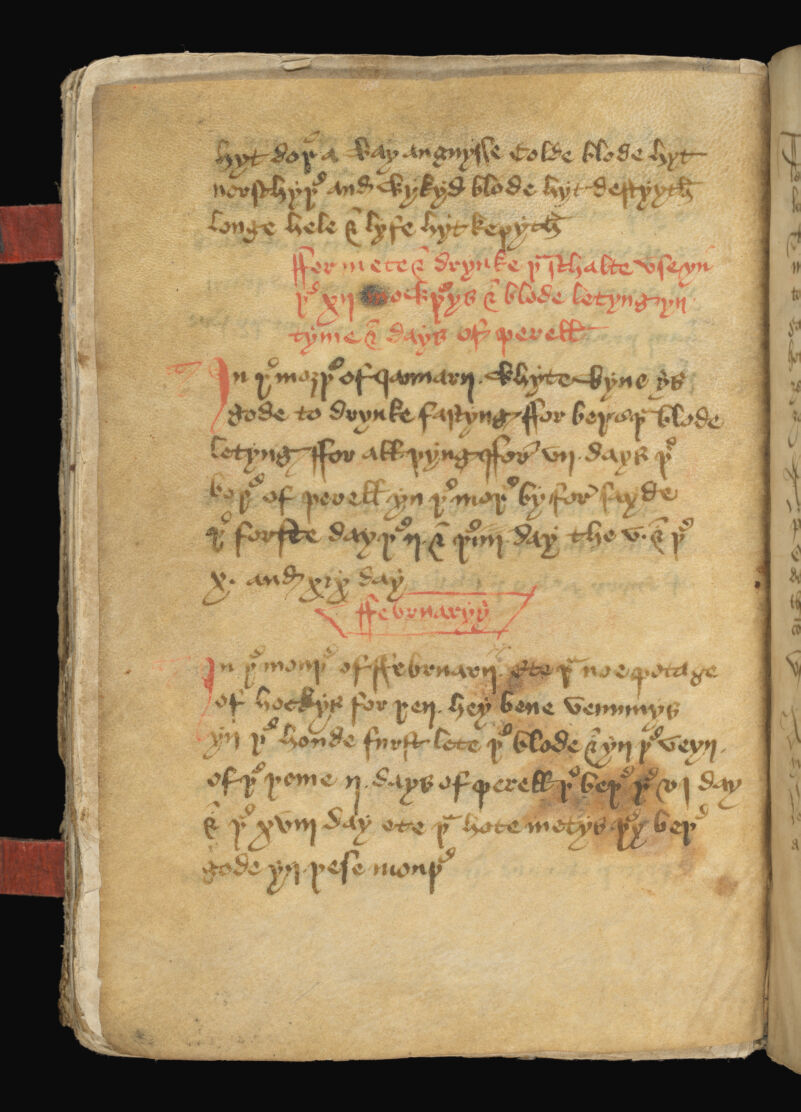 hyt doþ a way anguysse Colde blode hyt
norschyþ and wykyd blode hyt destyyth
longe hele & lyfe hyt kepyth
ffor mete & drynke þu schalte vse yn
þe xij mockþys & blode letyng yn
tyme & days of perell
In þe monþe of Januarij. Whyte wyne ys
gode to drynke fastyng ffor beþ blode
letyng ffor all þyng ffor vij. days þer
beþe of perell yn þe moþe by for sayde
þe forste day þe ij. & þe iiij day the v. & þe
x. and xix day
ffebruaryy
In þe monþe of ffebruarij. Ete þu noe potage
of hockys for þen. hey bene venimys
yn þe honde furst lete þe blode & yn þe veyn.
of þe þome ij. days of perell þer beþe þe vj day
& þe xviij day ete þu hote metys þey beþe
gode yn þese monþe